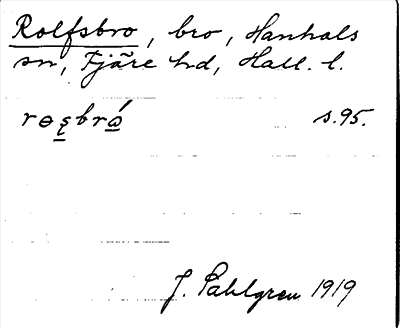 Rolfsbro, bro, Hanhals
sn, Fjäre hd, Hall. l.
s. 95.
J. Sahlgren 1919